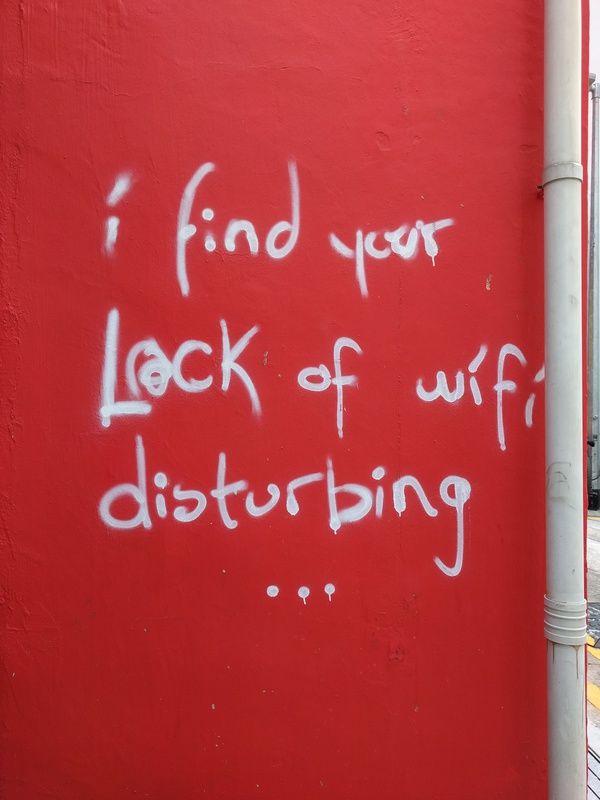 i find your
Lack of wifi
disturbing
...